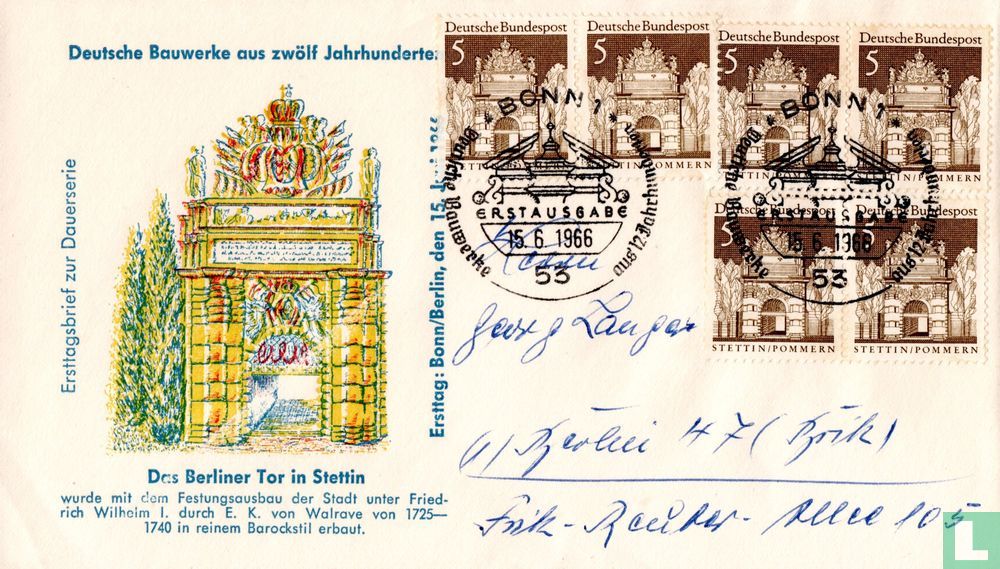 Deutsche Bauwerke aus zwölf Jahrhunderten
Ersttagsbrief zur Dauerserie
Ersttag: Bonn/Berlin, den 15. Juni 1966
Das Berliner Tor in Stettin
wurde mit dem Festungsausbau der Stadt unter Fried-
rich Wilhelm I. durch E. K. von Walrave von 1725—
1740 in reinem Barockstil erbaut.
Deutsche Bundespost
5
Deutsche Bundespost
5
STETTIN/POMMERN
STETTIN/POMMERN
Deutsche Bundespost
5
Deutsche Bundespost
5
STETTIN/POMMERN
STETTIN/POMMERN
Deutsche Bundespost
5
Deutsche Bundespost
5
STETTIN/POMMERN
STETTIN/POMMERN
* BONN 1 *
Deutsche Bauwerke
aus 12 Jahrhunderten
ERSTAUSGABE
15.6.1966
53
* BONN 1 *
Deutsche Bauwerke
aus 12 Jahrhunderten
ERSTAUSGABE
15.6.1966
53
Herrn
Georg Langer
1) Berlin 47 (Britz)
Allee 105
L